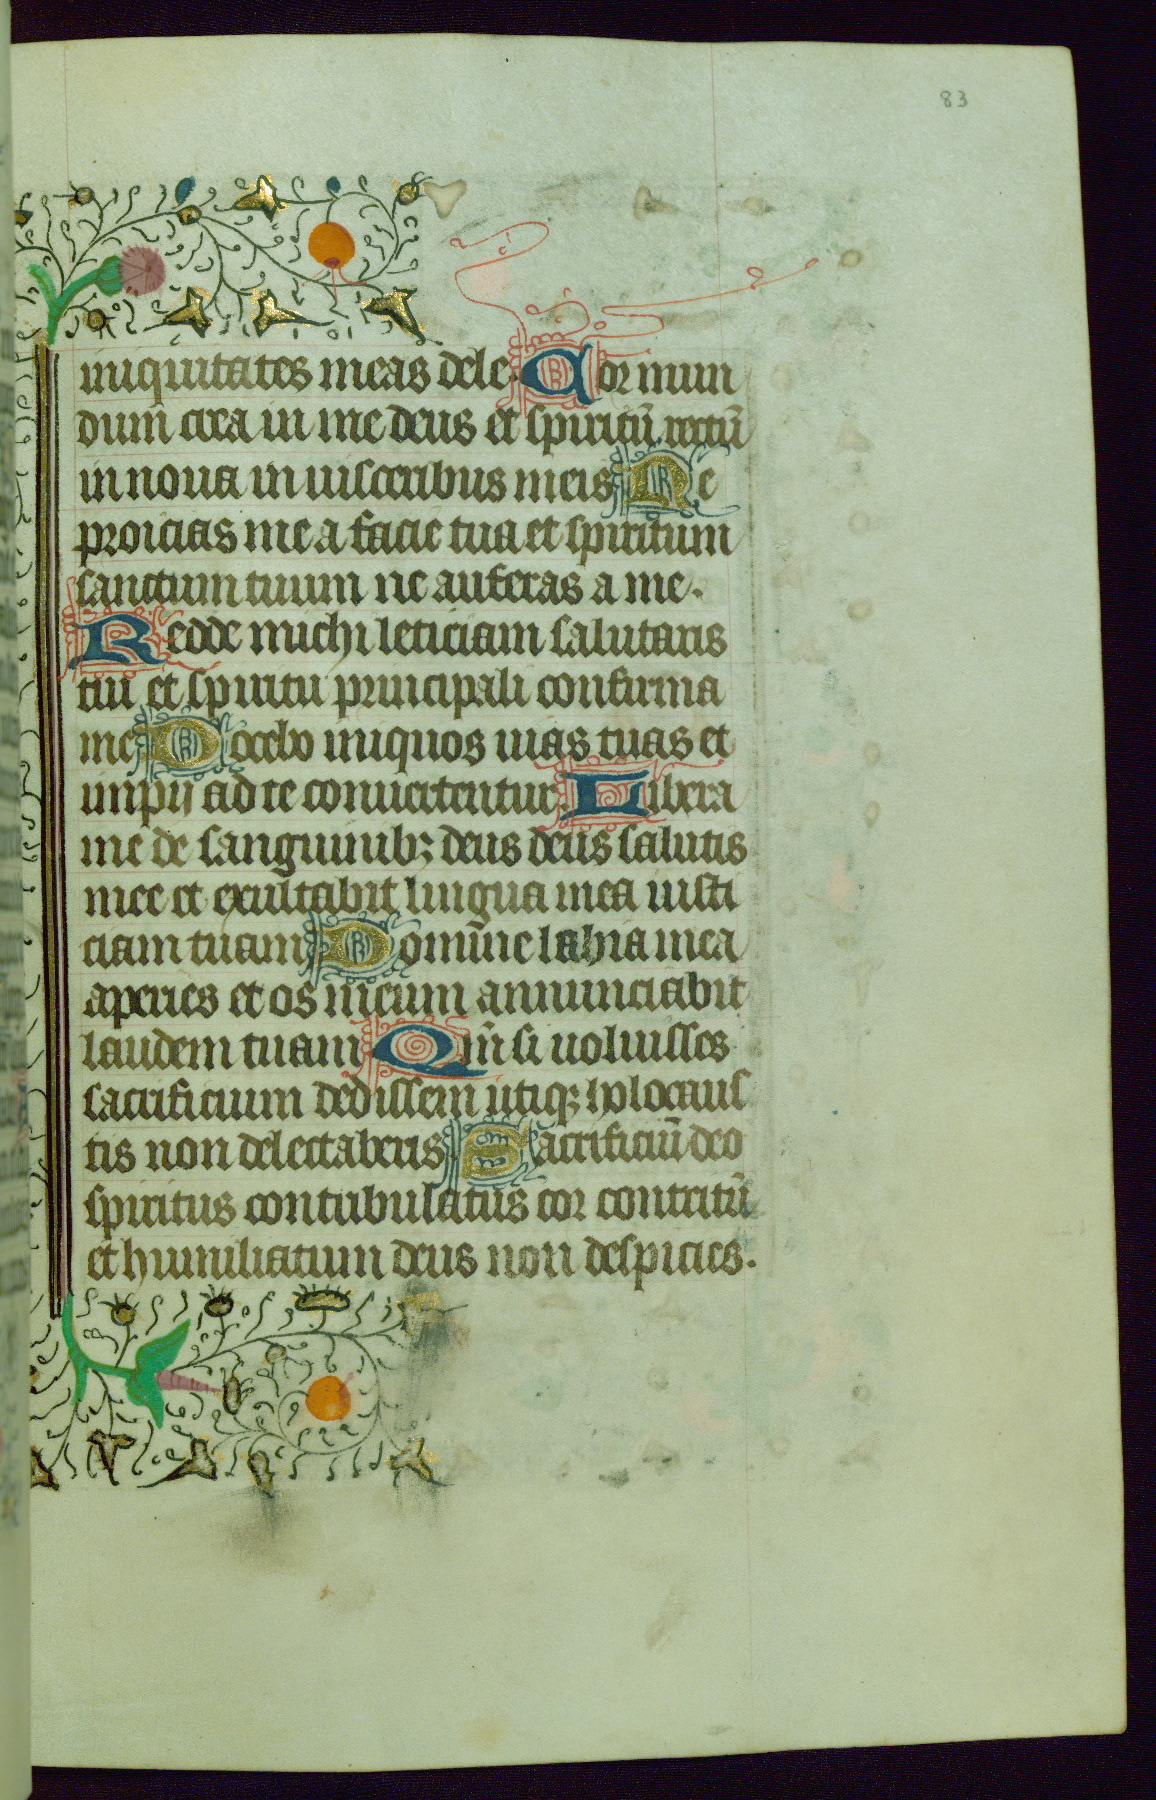 83
iniquitates meas dele. Cor mun
dum crea in me deus et spiritū rectū
in noua in uisceribus meis. Ne
proicias me a facie tua et spiritum
sanctum tuum ne auferas a me.
Redde michi leticiam salutaris
tui et spiritu principali confirma
me. Docebo iniquos uias tuas et
impij ad te conuertentur. Libera
me de sanguinibꝫ deus deus salutis
mee et exultabit lingua mea iusti
ciam tuam. Domine labia mea
aperies et os meum annunciabit
laudem tuam. Qm̄ si uoluisses
sacrificium dedissem utiqꝫ holocaus
tis non delectaberis. Sacrificiū deo
spiritus contribulatus cor contritū
et humiliatum deus non despicies.